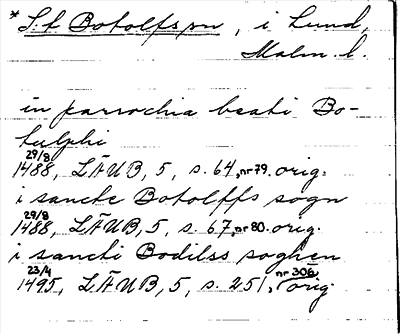 * S:t Botolfs sn, i Lund,
Malm. l.
in parrochia beati Bo-
tulphi
29/8
1488, LÄUB, 5, s. 64, nr 79. orig.
i sancte Botolffs sogn
29/8
1488, LÄUB, 5, s. 67, nr 80. orig.
i sancti Bodilss soghen
23/4
1495, LÄUB, 5, s. 251, nr 306. orig